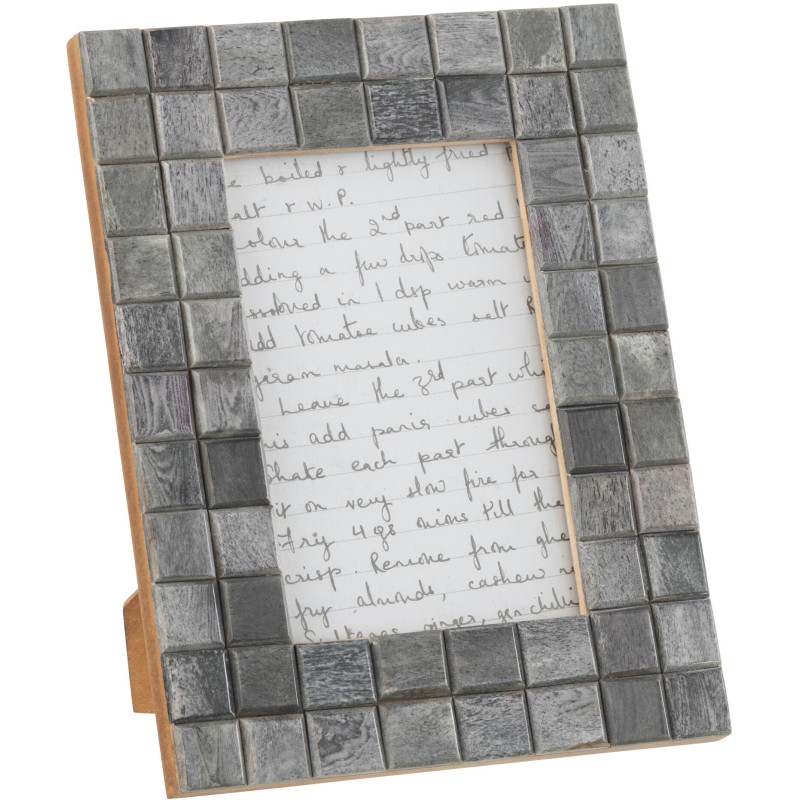 e boiled & lightly fried
alt & W.P.
olour the 2nd part red
dding a few drops tomato
ssolved in 1 dsp warm
dd tomatoe cubes salt
garam masala.
Leave the 3rd part whi
his add panir cubes sa
Shake each part through
it on very slow fire for
Fry 4 gs onions till the
crisp. Remove from ghe
fry almonds, cashew n
Sultanas, ginger, gr chilli